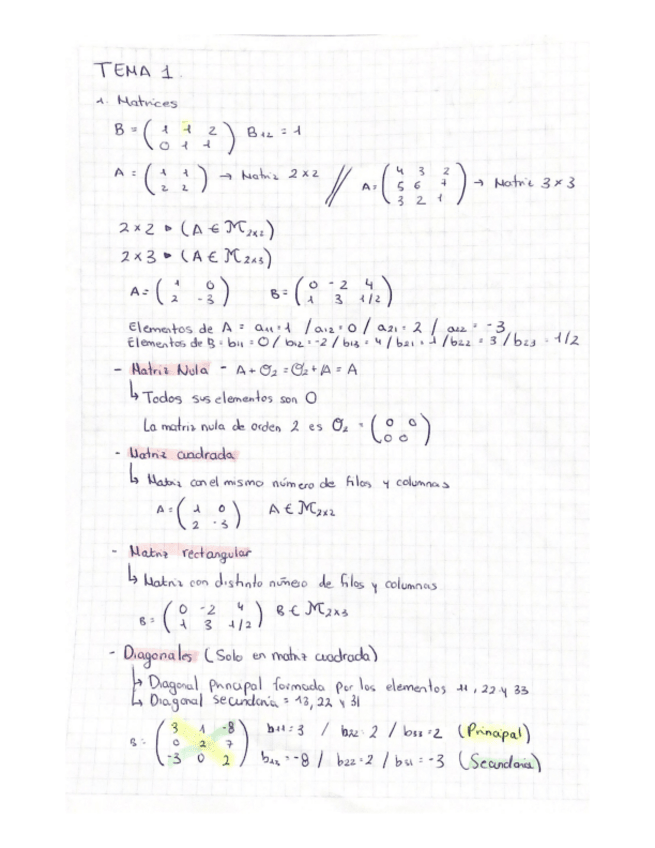 TEMA 1.
1. Matrices
B = ( 1 1 2 ) B12 = 1
0 1 1
A = ( 1 1 ) → Matriz 2x2 // A = ( 4 3 2 ) → Matriz 3x3
2 2 5 6 7
3 2 1
2x2 (A ∈ M2x2)
2x3 (A ∈ M2x3)
A = ( 1 0 ) B = ( 0 -2 4 )
2 -3 1 3 1/2
Elementos de A = a11 = 1 / a12 = 0 / a21 = 2 / a22 = -3
Elementos de B = b11 = 0 / b12 = -2 / b13 = 4 / b21 = 1 / b22 = 3 / b23 = 1/2
- Matriz Nula - A + O2 = O2 + A = A
↳ Todos sus elementos son 0
La matriz nula de orden 2 es O2 = ( 0 0 )
0 0
- Matriz cuadrada
↳ Matriz con el mismo número de filas y columnas
A = ( 1 0 ) A ∈ M2x2
2 -3
- Matriz rectangular
↳ Matriz con distinto número de filas y columnas
B = ( 0 -2 4 ) B ∈ M2x3
1 3 1/2
- Diagonales (Solo en matriz cuadrada)
↳ Diagonal principal formada por los elementos 11, 22 y 33
↳ Diagonal secundaria = 13, 22 y 31
B = ( 3 1 -8 ) b11 = 3 / b22 = 2 / b33 = 2 (Principal)
0 2 7
-3 0 2 b13 = -8 / b22 = 2 / b31 = -3 (Secundaria)